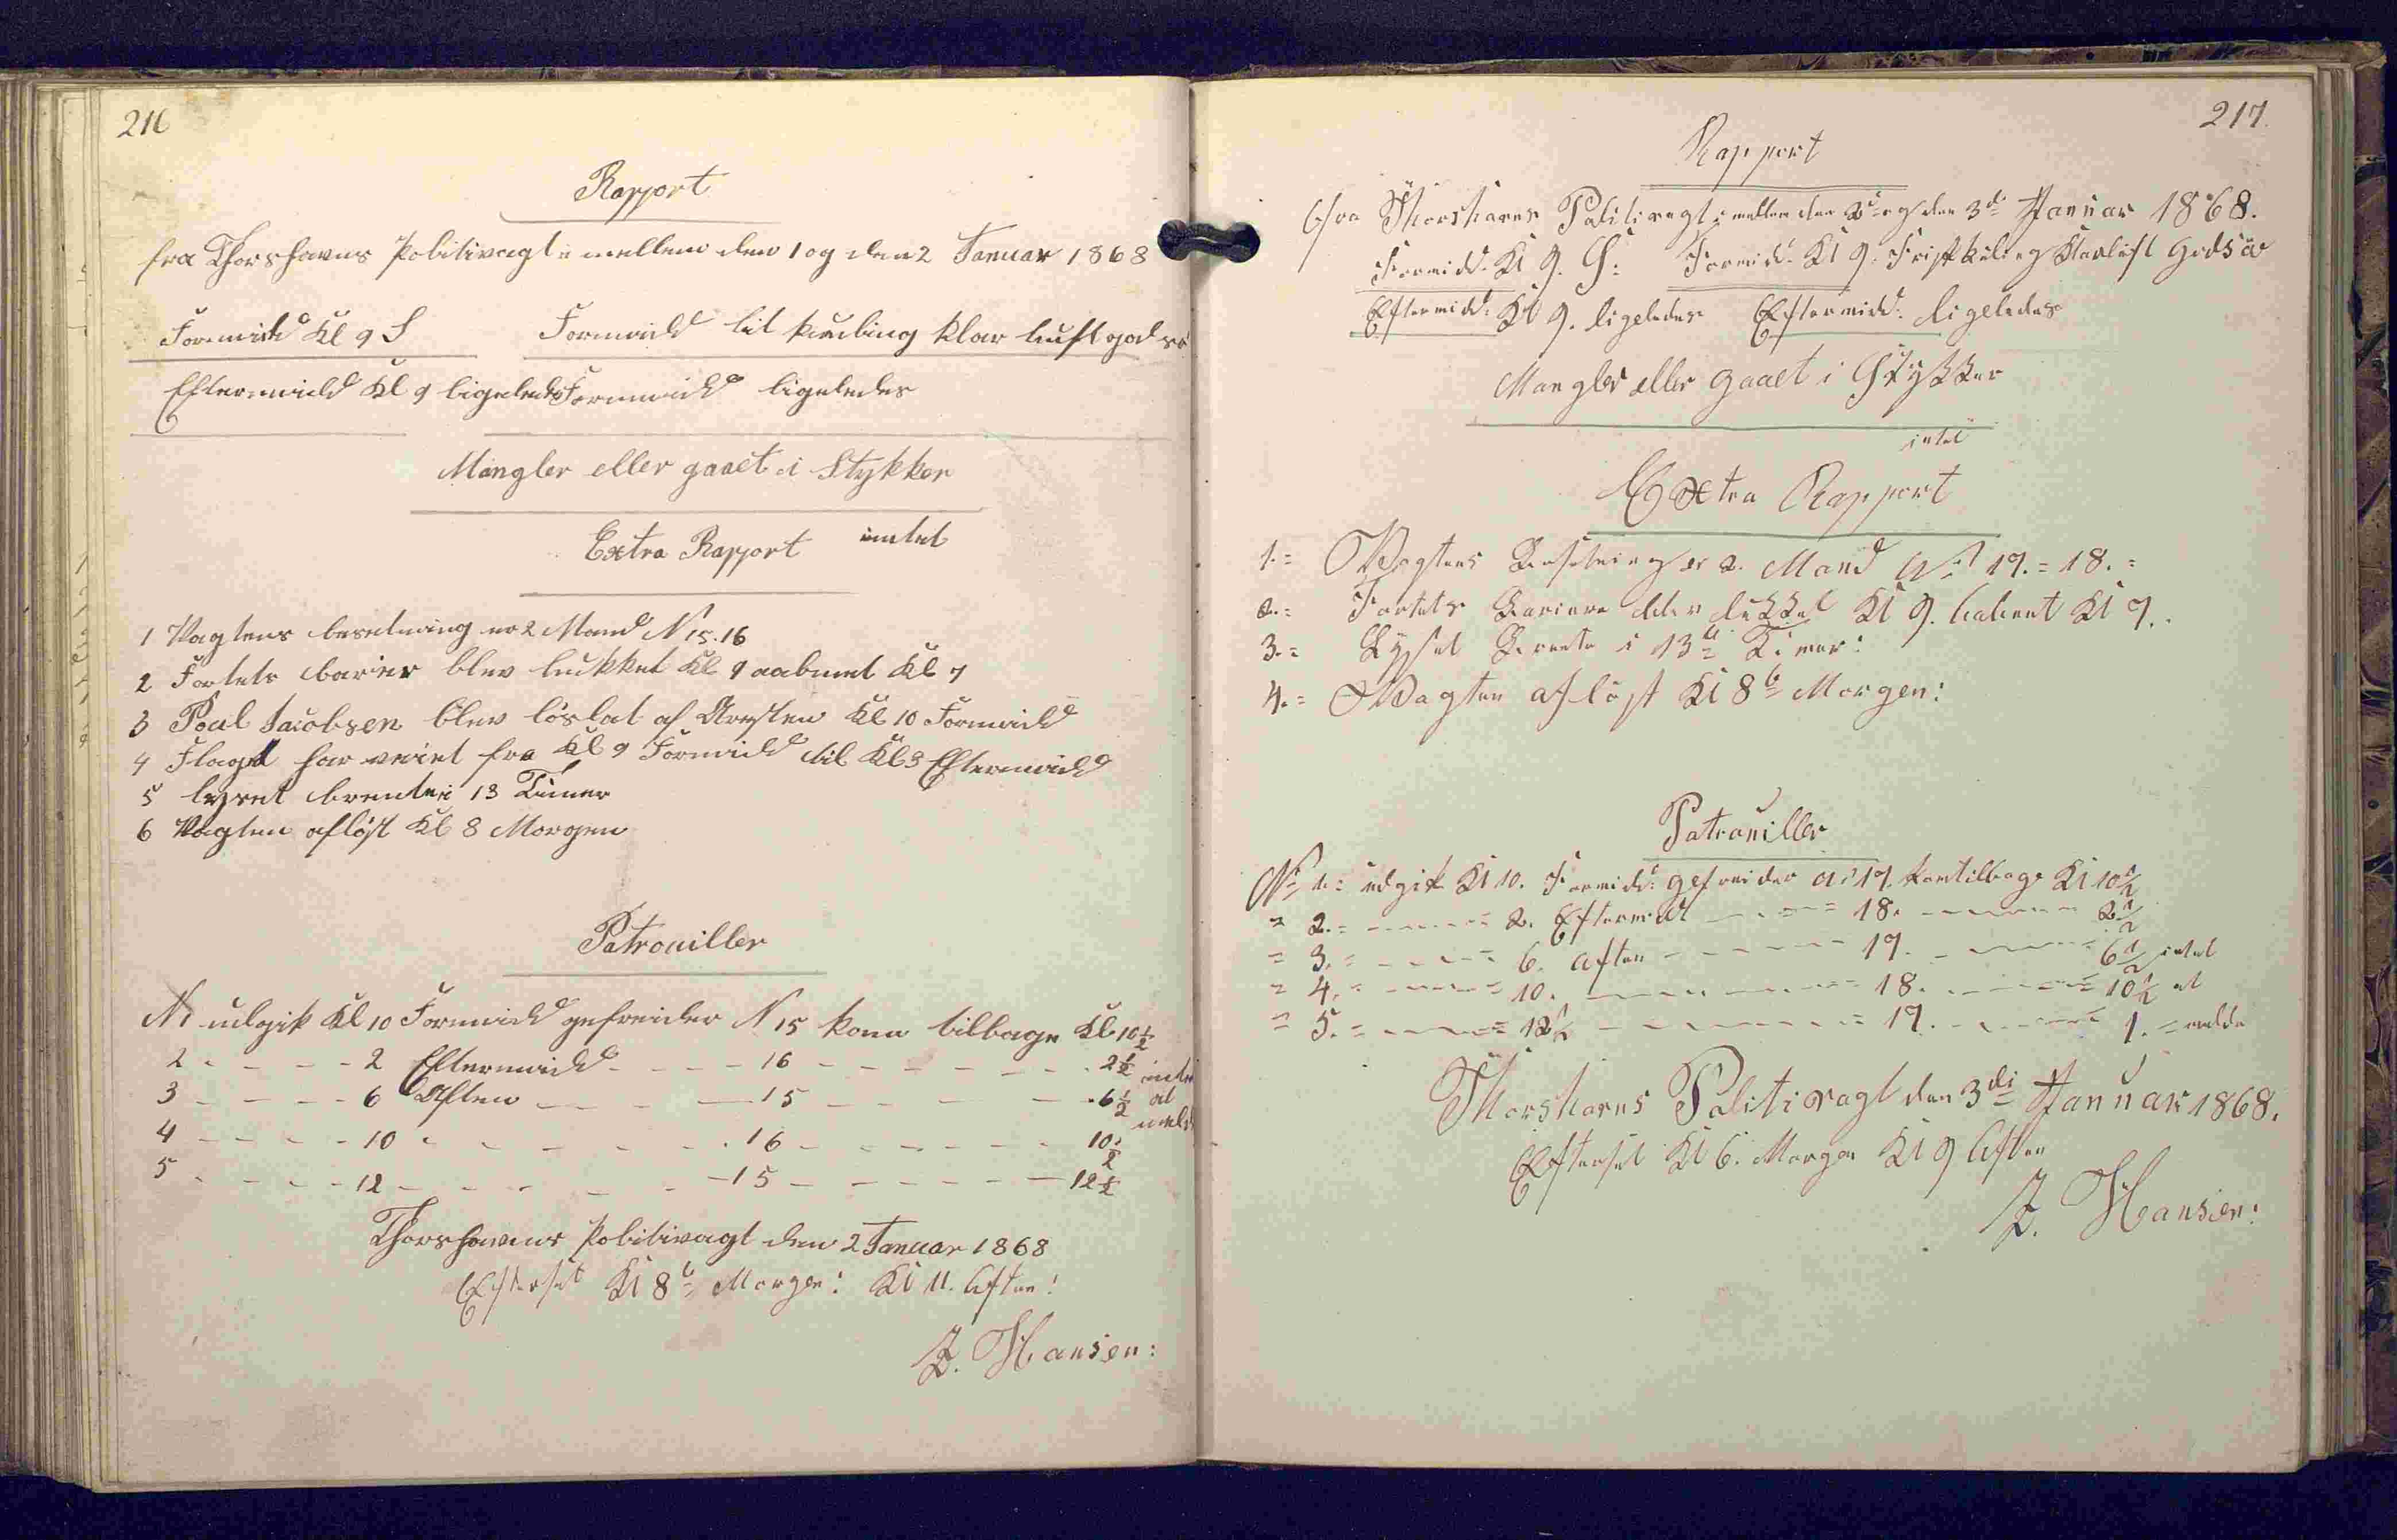 216
Rapport
fra Thorshavns Politivagt i mellem den 1 og den 2 Januar 1868
Formidd Kl 9 S Formidd lit kuling klar luft god sö
Eftermidd Kl 9 ligeledes Formidd ligeledes
Mangler eller gaaet i Stykker
intet
Extra Rapport
1 Vagtens besetning er 2 Mand N 15. 16
2 Fortets barier blev lukket Kl 9 aabnet Kl 7
3 Poul Jacobsen blev löslat af Aresten Kl 10 Formidd
4 Flaget har veiet fra Kl 9 Formidd til Kl 3 Eftermidd
5 lyset brente i 13 Timer
6 Vagten aflöst Kl 8 Morgen
Patrouiller
N 1 udgik Kl 10 Formidd gefreider N 15 kom tilbage Kl 10 1/2
2 - - - - 2 Eftermidd - - - - 16 - - - - - - 2 1/2 intet
3 - - - - 6 Aften - - - - 15 - - - - - - 6 1/2 at
4 - - - - 10 - - - - - - 16 - - - - - - 10 1/2 meld
5 - - - - 12 - - - - - - 15 - - - - - - 12 1/2
Thorshavns Politivagt den 2 Januar 1868
Efterset Kl 8 Morgen: Kl 11. Aften:
J. Hansen:
217.
Rapport
fra Thorshavns Politivagt i mellem den 2 og den 3di Januar 1868.
Formidd. Kl 9. S: Formidd. Kl 9. Frisk kuling Klarluft god Sö
Eftermidd: Kl 9. ligeledes Eftermidd: ligeledes
Mangler eller gaaet i Stykker
intet
Extra Rapport
1. = Wagtens Besetning er 2. Mand No 17. = 18. =
2. = Fortets Bariere blev lukket Kl 9. aabent Kl 7.
3. = Lyset Brente i 13 Timer:
4. = Wagten aflöst Kl 8 Morgen:
Patrouiller
No 1. = udgik Kl 10. Formidd: gefreider No 17. kom tilbage Kl 10 1/2
= 2. = - - - - = 2. Eftermidd - - - = 18. - - - - 2 1/2
= 3. = - - - - = 6. Aften - - - - 17. - - - - 6 1/2 intet
= 4. = - - - - = 10. - - - - = 18. - - - - = 10 1/2 at
= 5. = - - - - = 12 1/2 - - - - = 17. - - - - 1. = melde
Thorshavns Politivagt den 3di Januar 1868.
Efterset Kl 6. Morgen Kl 9 Aften
J. Hansen: